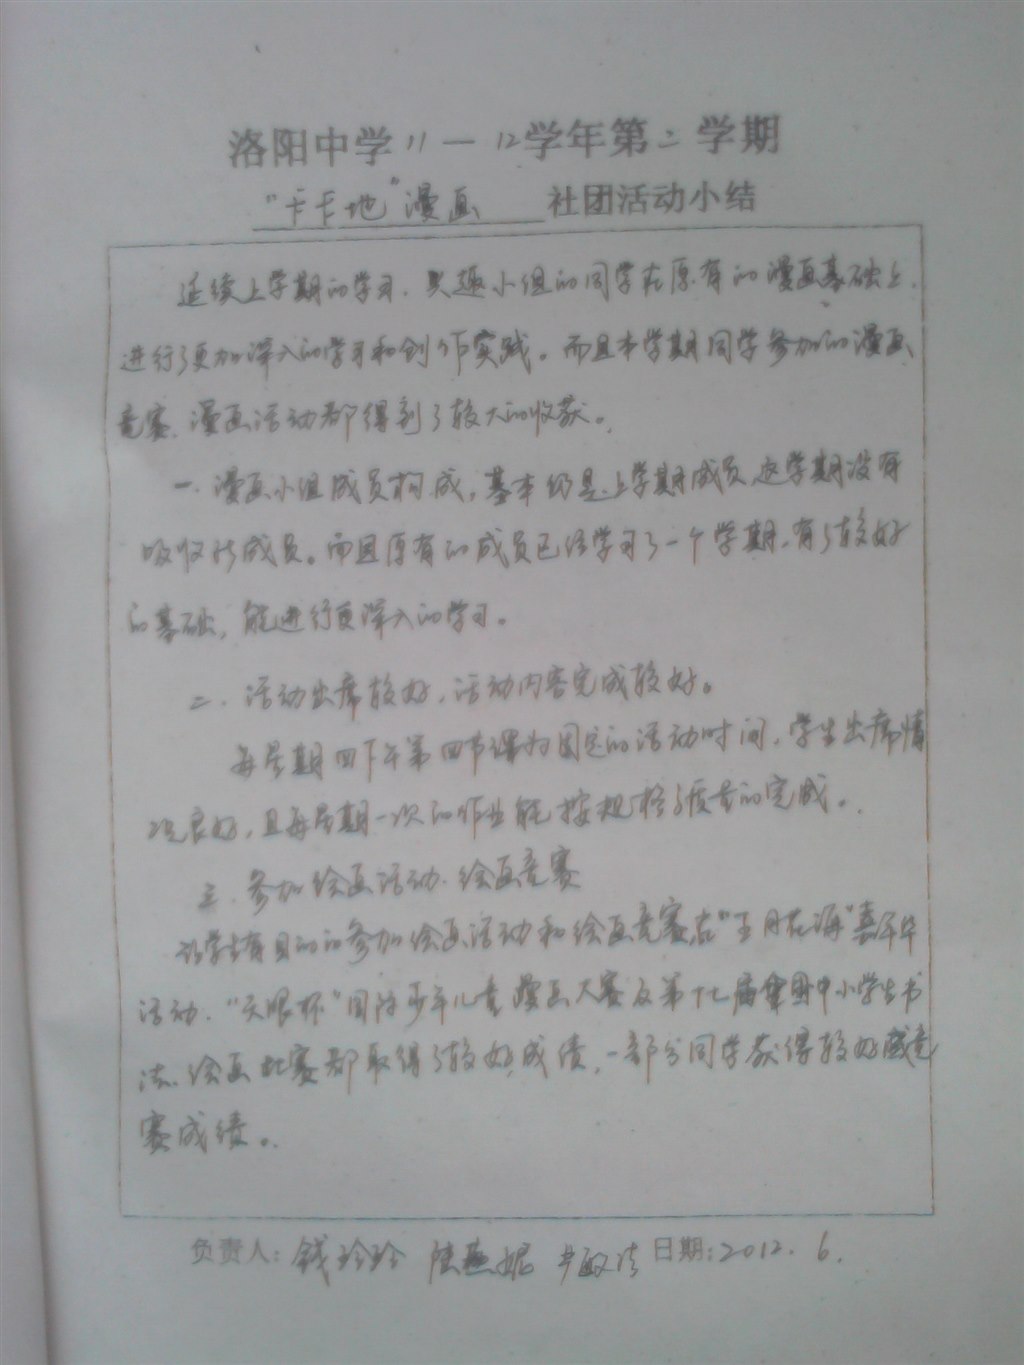 洛阳中学11—12学年第二学期
"卡卡地"漫画 社团活动小结
延续上学期的学习,兴趣小组的同学在原有的漫画基础上,
进行了更加深入的学习和创作实践。而且本学期同学参加的漫画
竞赛、漫画活动都得到了较大的收获。
一.漫画小组成员构成,基本仍是上学期成员,这学期没有
吸收新成员。而且原有的成员已经学习了一个学期,有了较好
的基础,能进行更深入的学习。
二.活动出席较好,活动内容完成较好。
每星期四下午第四节课为固定的活动时间,学生出席情
况良好,且每星期一次的作业能按规格质量的完成。
三.参加绘画活动、绘画竞赛
让学生有目的的参加绘画活动和绘画竞赛,在"五月在海"嘉年华
活动、"天眼杯"国际少年儿童漫画大赛及第十七届 中小学生书
法、绘画比赛都取得了较好成绩,一部分同学获得较好 竞
赛成绩。
负责人:钱玲玲 陆燕妮 日期:2012.6.